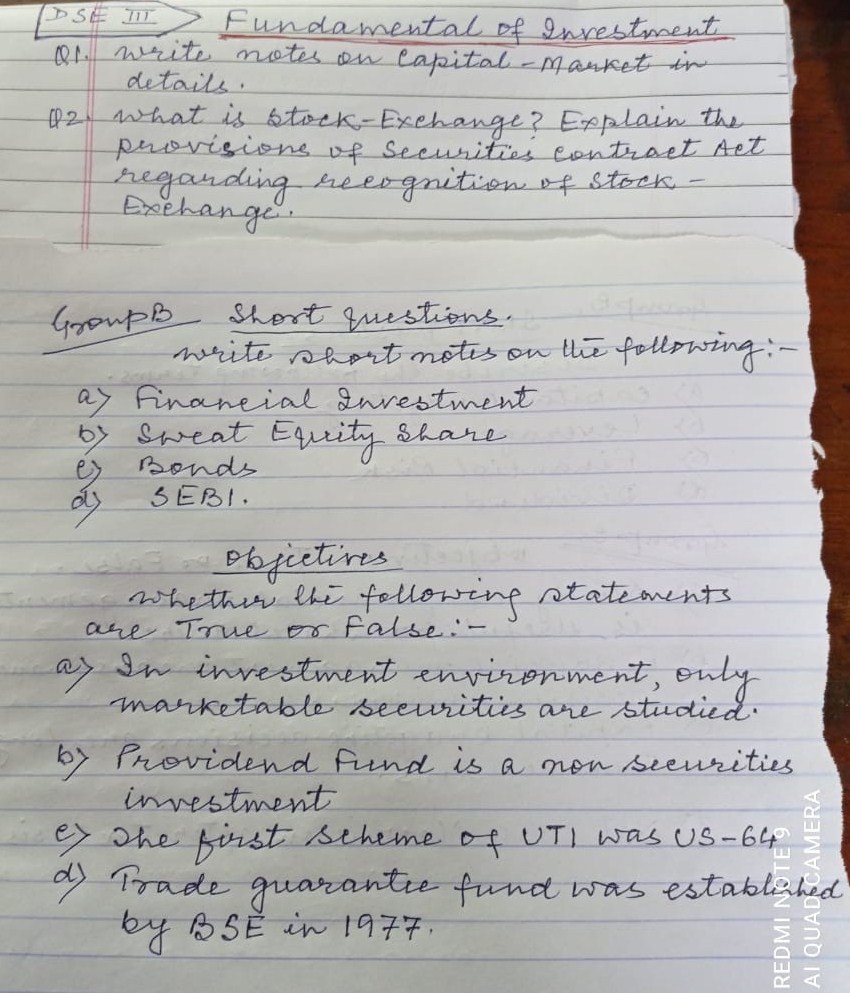 DSE III Fundamental of Investment
Q1. Write notes on Capital-Market in
details.
Q2. What is Stock-Exchange? Explain the
provisions of Securities Contract Act
regarding recognition of Stock-
Exchange.
Group B Short questions.
Write short notes on the following:-
a) Financial Investment
b) Sweat Equity Share
c) Bonds
d) SEBI.
Objectives
Whether the following statements
are True or False:-
a) In investment environment, only
marketable securities are studied.
b) Providend Fund is a non securities
investment
c) The first scheme of UTI was US-64
d) Trade guarantee fund was established
by BSE in 1977.
REDMI NOTE 9
AI QUAD CAMERA